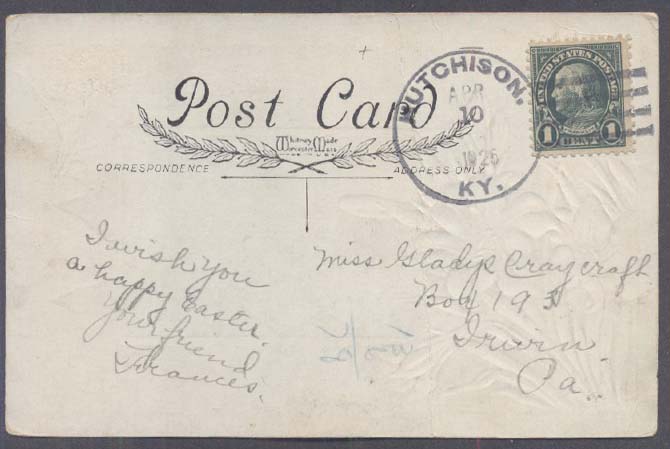 Post Card
Whitney Made
Worcester Mass
CORRESPONDENCE
ADDRESS ONLY
HUTCHISON,
APR
10
1926
KY.
UNITED STATES POSTAGE
1 1
I wish you
a happy Easter.
Your friend
Frances.
Miss Gladys Craycraft
Box 193
Irwin
Pa.